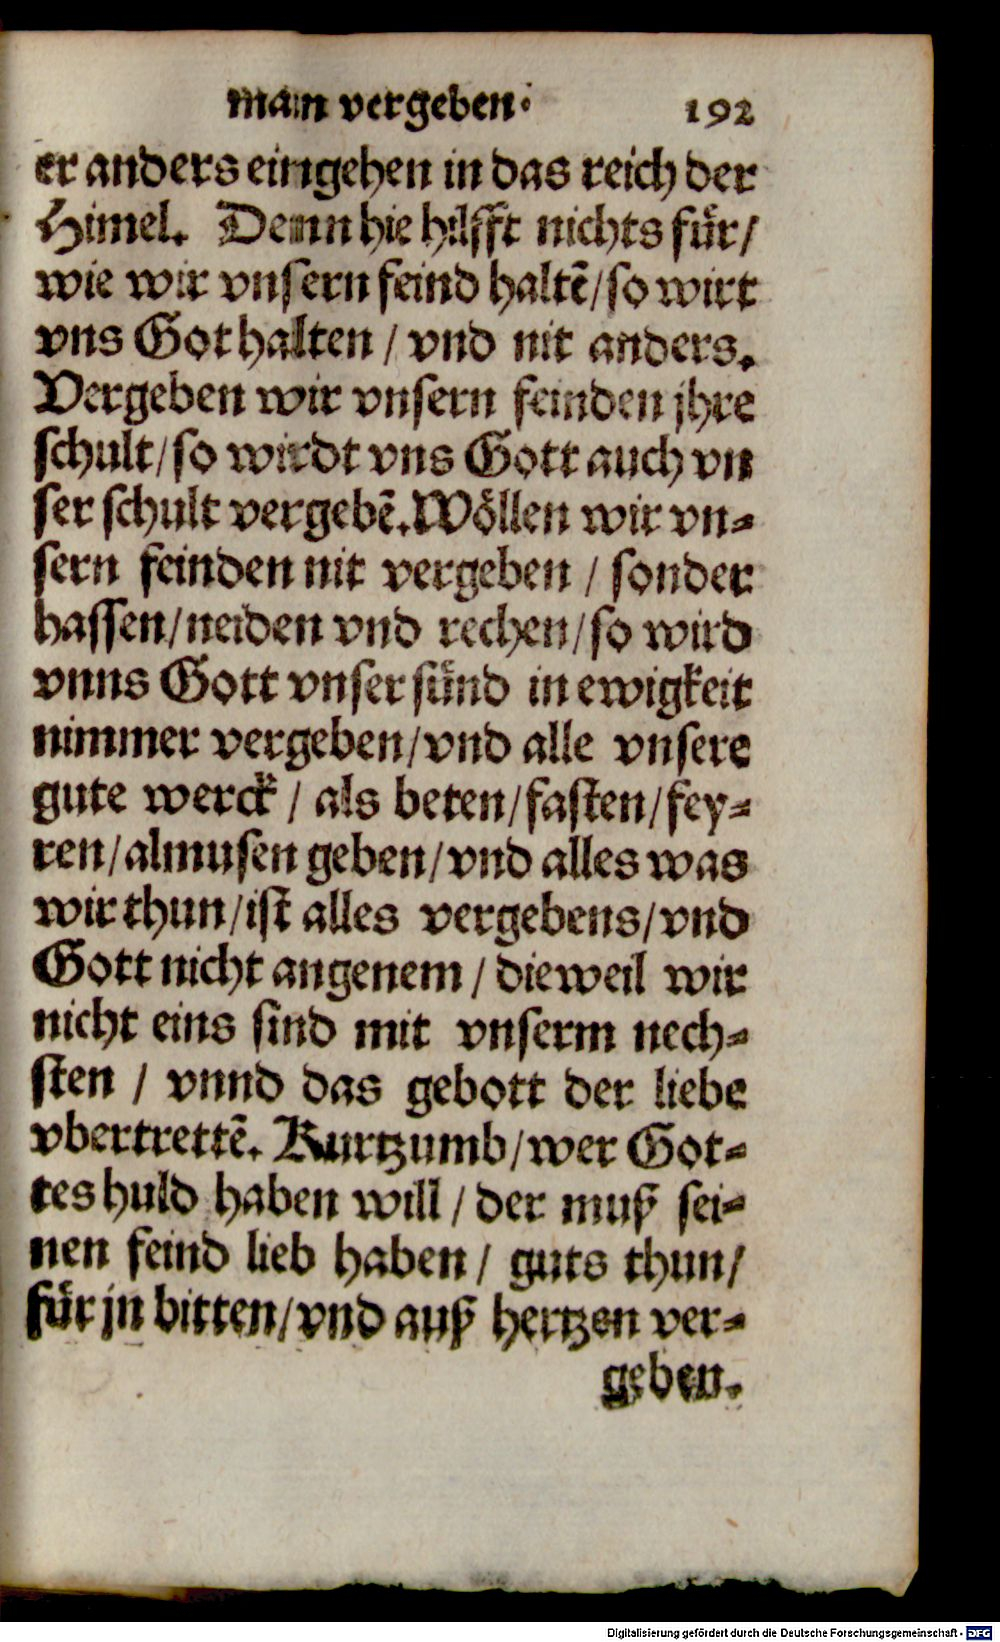 man vergeben. 192
er anders eingehen in das reich der
Himel. Denn hie hilfft nichts für/
wie wir vnsern feind haltẽ/so wirt
vns Got halten / vnd nit anders.
Vergeben wir vnsern feinden jhre
schult/so wirdt vns Gott auch vn
ser schult vergebẽ. Wöllen wir vn-
sern feinden nit vergeben / sonder
hassen/neiden vnd rechen/so wird
vnns Gott vnser sünd in ewigkeit
nimmer vergeben/vnd alle vnsere
gute werck / als beten/fasten/fey-
ren/almusen geben/vnd alles was
wir thun/ist alles vergebens/vnd
Gott nicht angenem / dieweil wir
nicht eins sind mit vnserm nech-
sten / vnnd das gebott der liebe
vbertrettẽ. Kurtzumb/wer Got-
tes huld haben will / der muß sei-
nen feind lieb haben / guts thun/
für jn bitten/vnd auß hertzen ver-
geben.
Digitalisierung gefördert durch die Deutsche Forschungsgemeinschaft - DFG